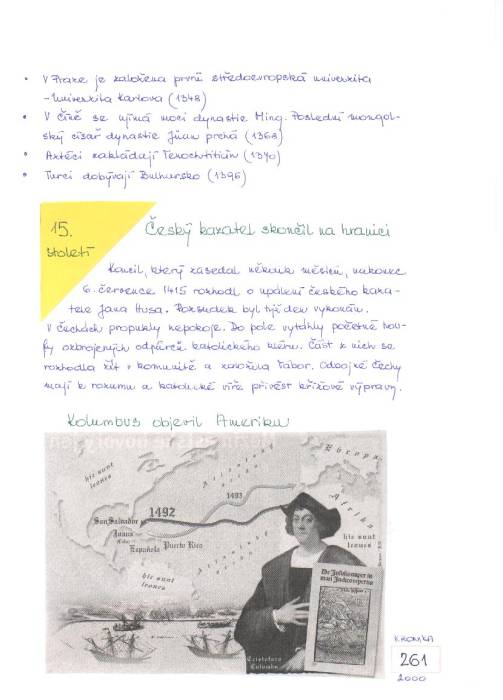 • V Praze je založena první středoevropská univerzita
- Univerzita Karlova (1348)
• V Číně se ujímá moci dynastie Ming. Poslední mongol-
ský císař dynastie Jüan prchá (1368)
• Aztéci zakládají Tenochtitlán (1370)
• Turci dobývají Bulharsko (1396)
15.
století
Český kazatel skončil na hranici
Koncil, který zasedal několik měsíců, nakonec
6. července 1415 rozhodl o upálení českého kaza-
tele Jana Husa. Rozsudek byl týž den vykonán.
V Čechách propukly nepokoje. Do pole vytáhly početné hou-
fy ozbrojených odpůrců katolického kléru. Část z nich se
rozhodla žít v komunitě a založila Tábor. Odbojné Čechy
mají k rozumu a katolické víře přivést křížové výpravy.
Kolumbus objevil Ameriku
hic sunt
leones
Atlantský
oceán
Evropa
1493
1492
San Salvador
Juana
Española
Puerto Rico
Atlantský
oceán
Afrika
hic sunt
leones
hic sunt
leones
Cristoforo
Colombo
KRONIKA
261
2000